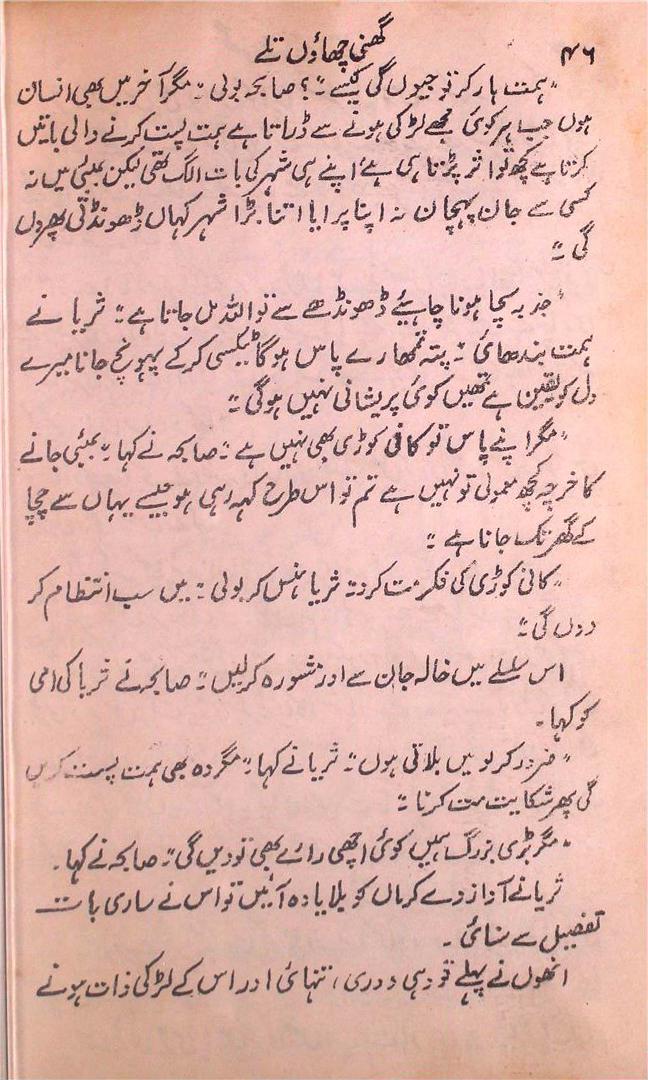 ۴۶
گھنی چھاؤں تلے
"ہمت ہار کر تو جیوں گی کیسے"؟ صابحہ بولی "مگر آخر میں بھی انسان
ہوں جب ہر کوئی مجھے لڑکی ہونے سے ڈراتا ہے ہمت پست کرنے والی باتیں
کرتا ہے کچھ تو اثر پڑتا ہی ہے اپنے ہی شہر کی بات الگ تھی لیکن بمبئی میں نہ
کسی سے جان پہچان نہ اپنا پرایا اتنا بڑا شہر کہاں ڈھونڈتی پھروں
گی"
"جذبہ سچا ہونا چاہیئے ڈھونڈھے سے تو اللہ مل جاتا ہے" ثریا نے
ہمت بندھائی "پتہ تمھارے پاس ہوگا ٹیکسی کر کے پہونچ جانا میرے
دل کو یقین ہے تمھیں کوئی پریشانی نہیں ہوگی"
"مگر اپنے پاس تو کافی کوڑی بھی نہیں ہے" صابحہ نے کہا "بمبئی جانے
کا خرچہ کچھ معمولی تو نہیں ہے تم تو اس طرح کہہ رہی ہو جیسے یہاں سے چچا
کے گھر تک جانا ہے"
"کانی کوڑی کی فکر مت کرو" ثریا ہنس کر بولی "میں سب انتظام کر
دوں گی"
اس سلسلے میں خالہ جان سے اور مشورہ کر لیں" صابحہ نے ثریا کی امی
کو کہا۔
"ضرور کر لو میں بلاتی ہوں" ثریا نے کہا "مگر وہ بھی ہمت پست کریں
گی پھر شکایت مت کرنا"
"مگر بڑی بزرگ ہیں کوئی اچھی رائے بھی تو دیں گی" صابحہ نے کہا۔
ثریا نے آواز دے کر ماں کو بلایا وہ آئیں تو اس نے ساری بات
تفصیل سے سنائی۔
انھوں نے پہلے تو وہی دوری، تنہائی اور اس کے لڑکی ذات ہونے